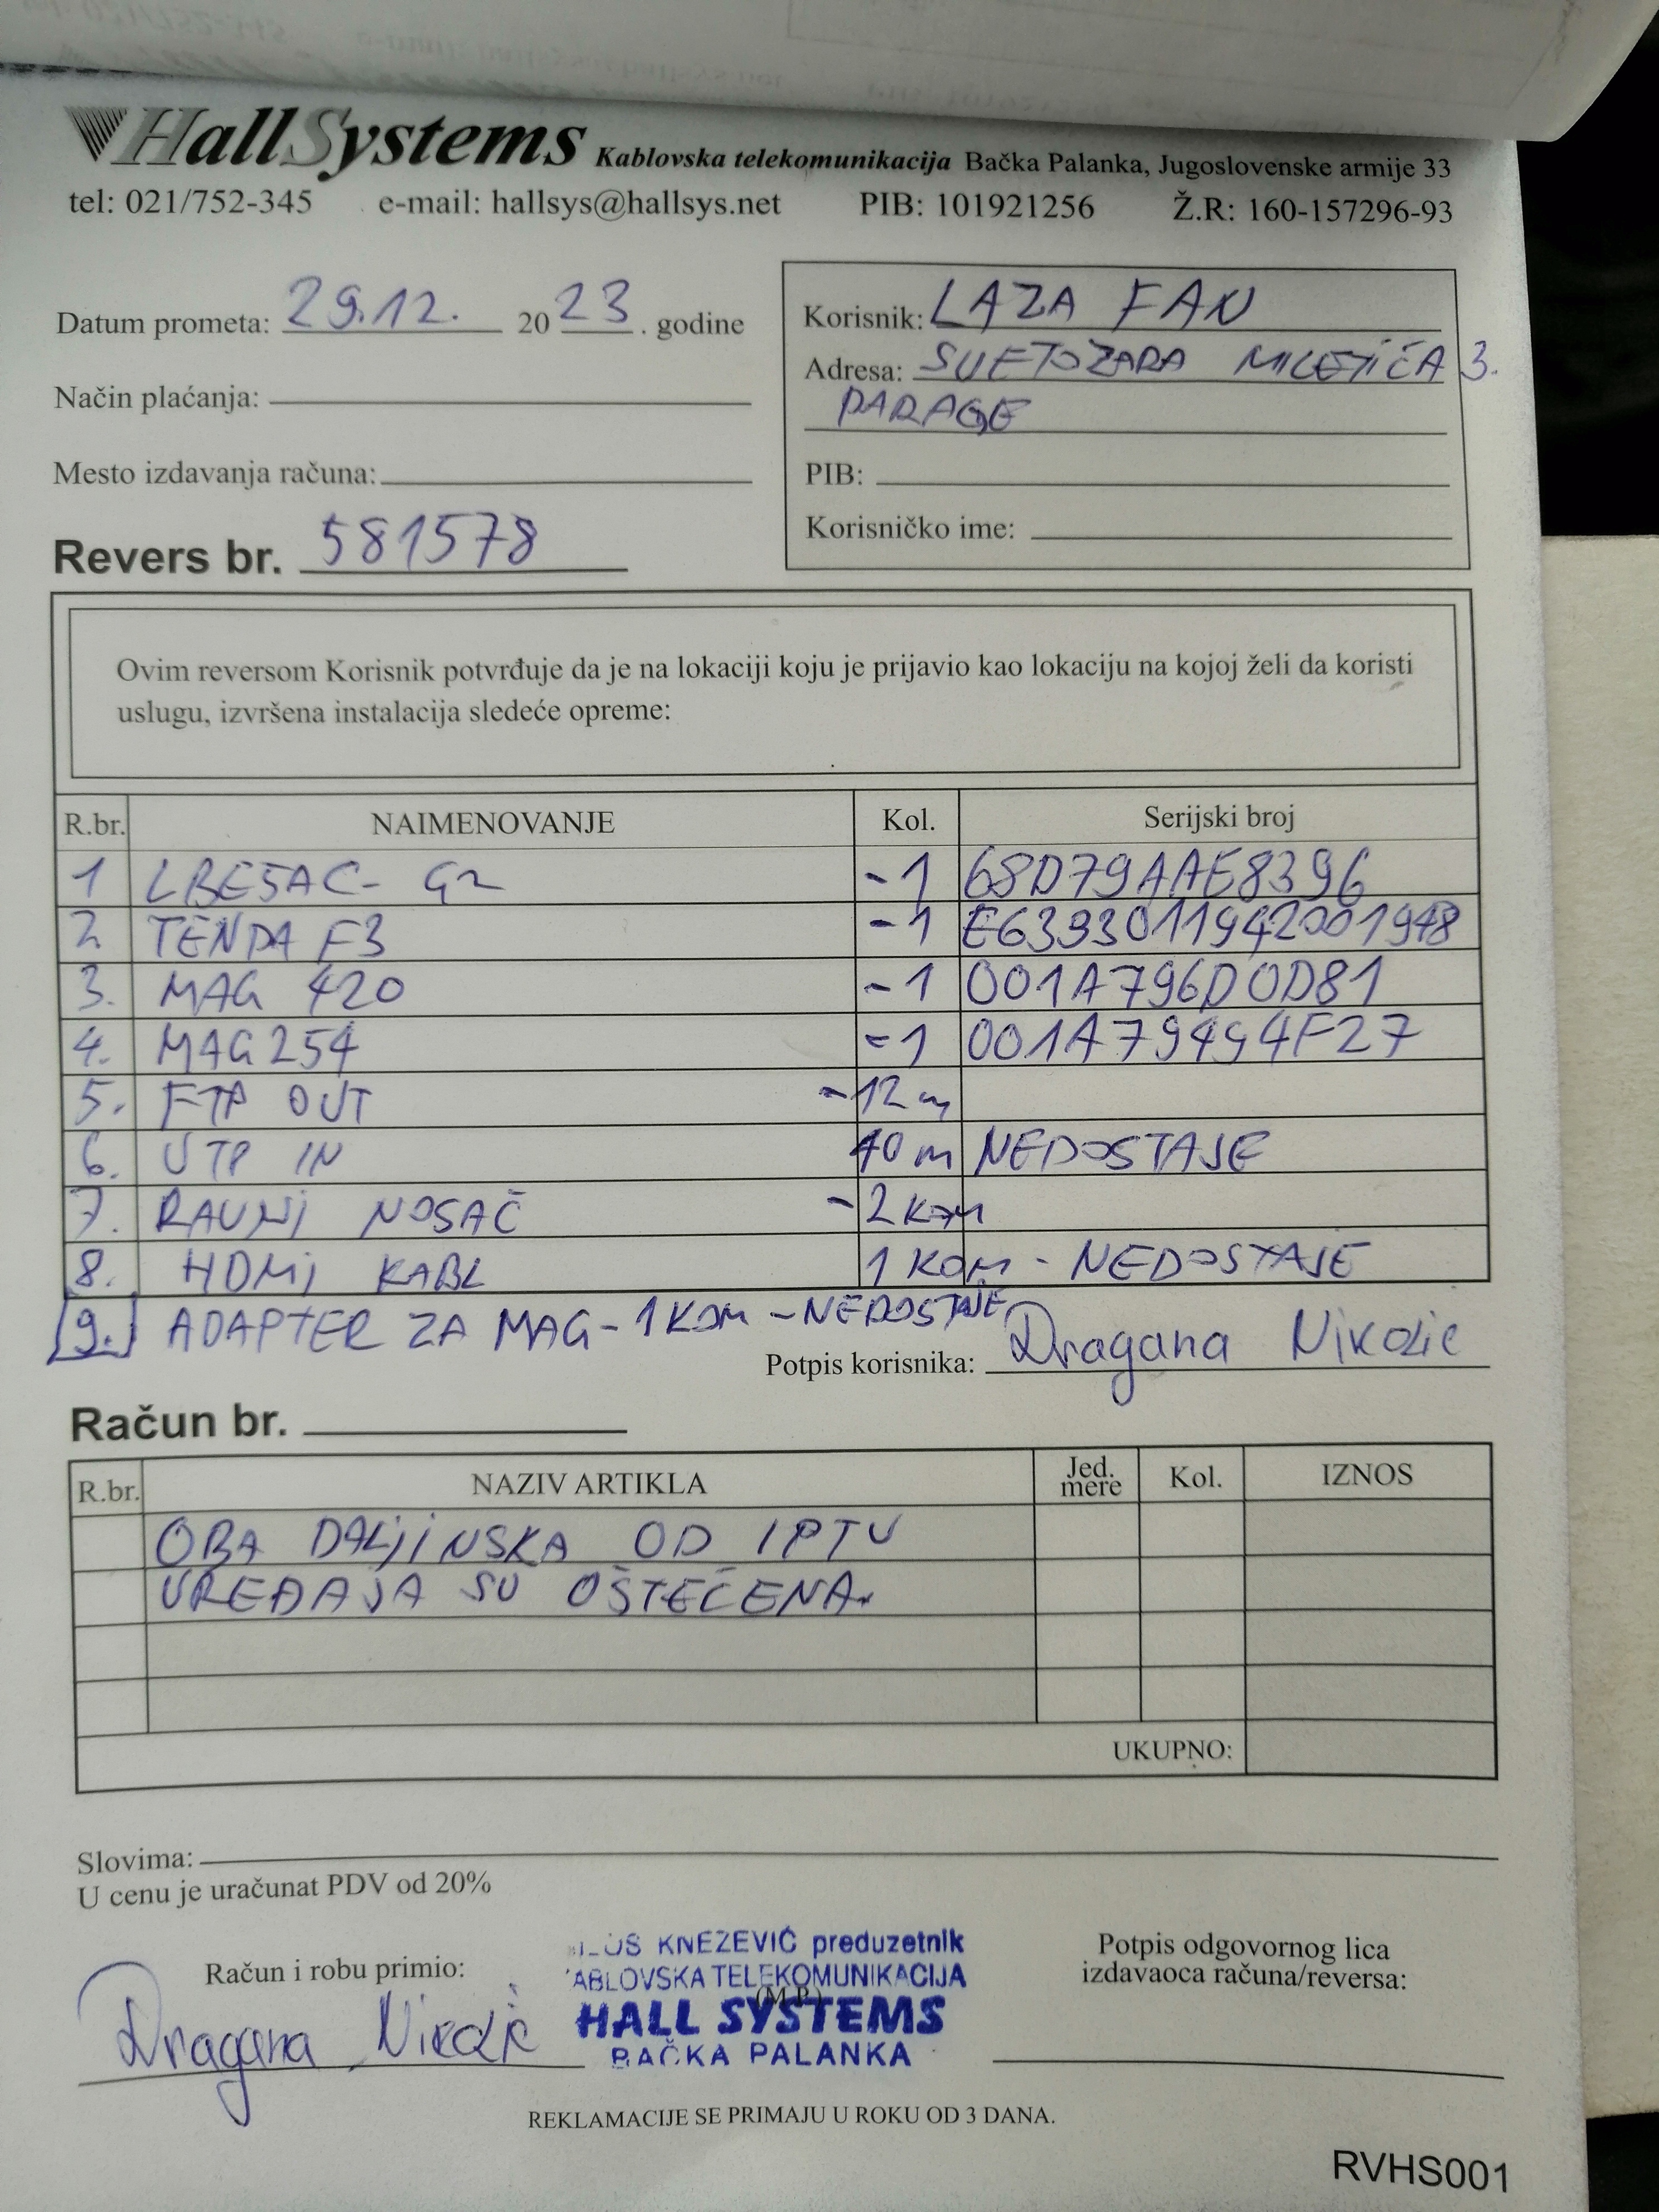 HallSystems Kablovska telekomunikacija Bačka Palanka, Jugoslovenske armije 33
tel: 021/752-345 e-mail: hallsys@hallsys.net PIB: 101921256 Ž.R: 160-157296-93
Datum prometa: 29.12. 2023. godine
Način plaćanja:
Mesto izdavanja računa:
Revers br. 581578
Korisnik: LAZA FAN
Adresa: SVETOZARA MILETIĆA 3.
PARAGE
PIB:
Korisničko ime:
Ovim reversom Korisnik potvrđuje da je na lokaciji koju je prijavio kao lokaciju na kojoj želi da koristi
uslugu, izvršena instalacija sledeće opreme:
R.br. NAIMENOVANJE Kol. Serijski broj
1 LBE5AC- G2 -1 68D79AAE8396
2 TENDA F3 -1 E6333011942001948
3. MAG 420 -1 001A796D0D81
4. MAG 254 -1 001A79494F27
5. FTP OUT -12m
6. UTP IN 40m NEDOSTAJE
7. RAVNI NOSAČ -2 KOM
8. HDMI KABL 1 KOM - NEDOSTAJE
9. ADAPTER ZA MAG - 1 KOM - NEDOSTAJE
Potpis korisnika: Dragana Nikolic
Račun br.
R.br. NAZIV ARTIKLA Jed. mere Kol. IZNOS
OBA DALJINSKA OD IPTV
UREĐAJA SU OŠTEĆENA.
UKUPNO:
Slovima:
U cenu je uračunat PDV od 20%
Račun i robu primio:
Dragana Nikolić
KNEZEVIĆ preduzetnik
TELEKOMUNIKACIJA
(M.P.)
HALL SYSTEMS
BAČKA PALANKA
Potpis odgovornog lica
izdavaoca računa/reversa:
REKLAMACIJE SE PRIMAJU U ROKU OD 3 DANA.
RVHS001